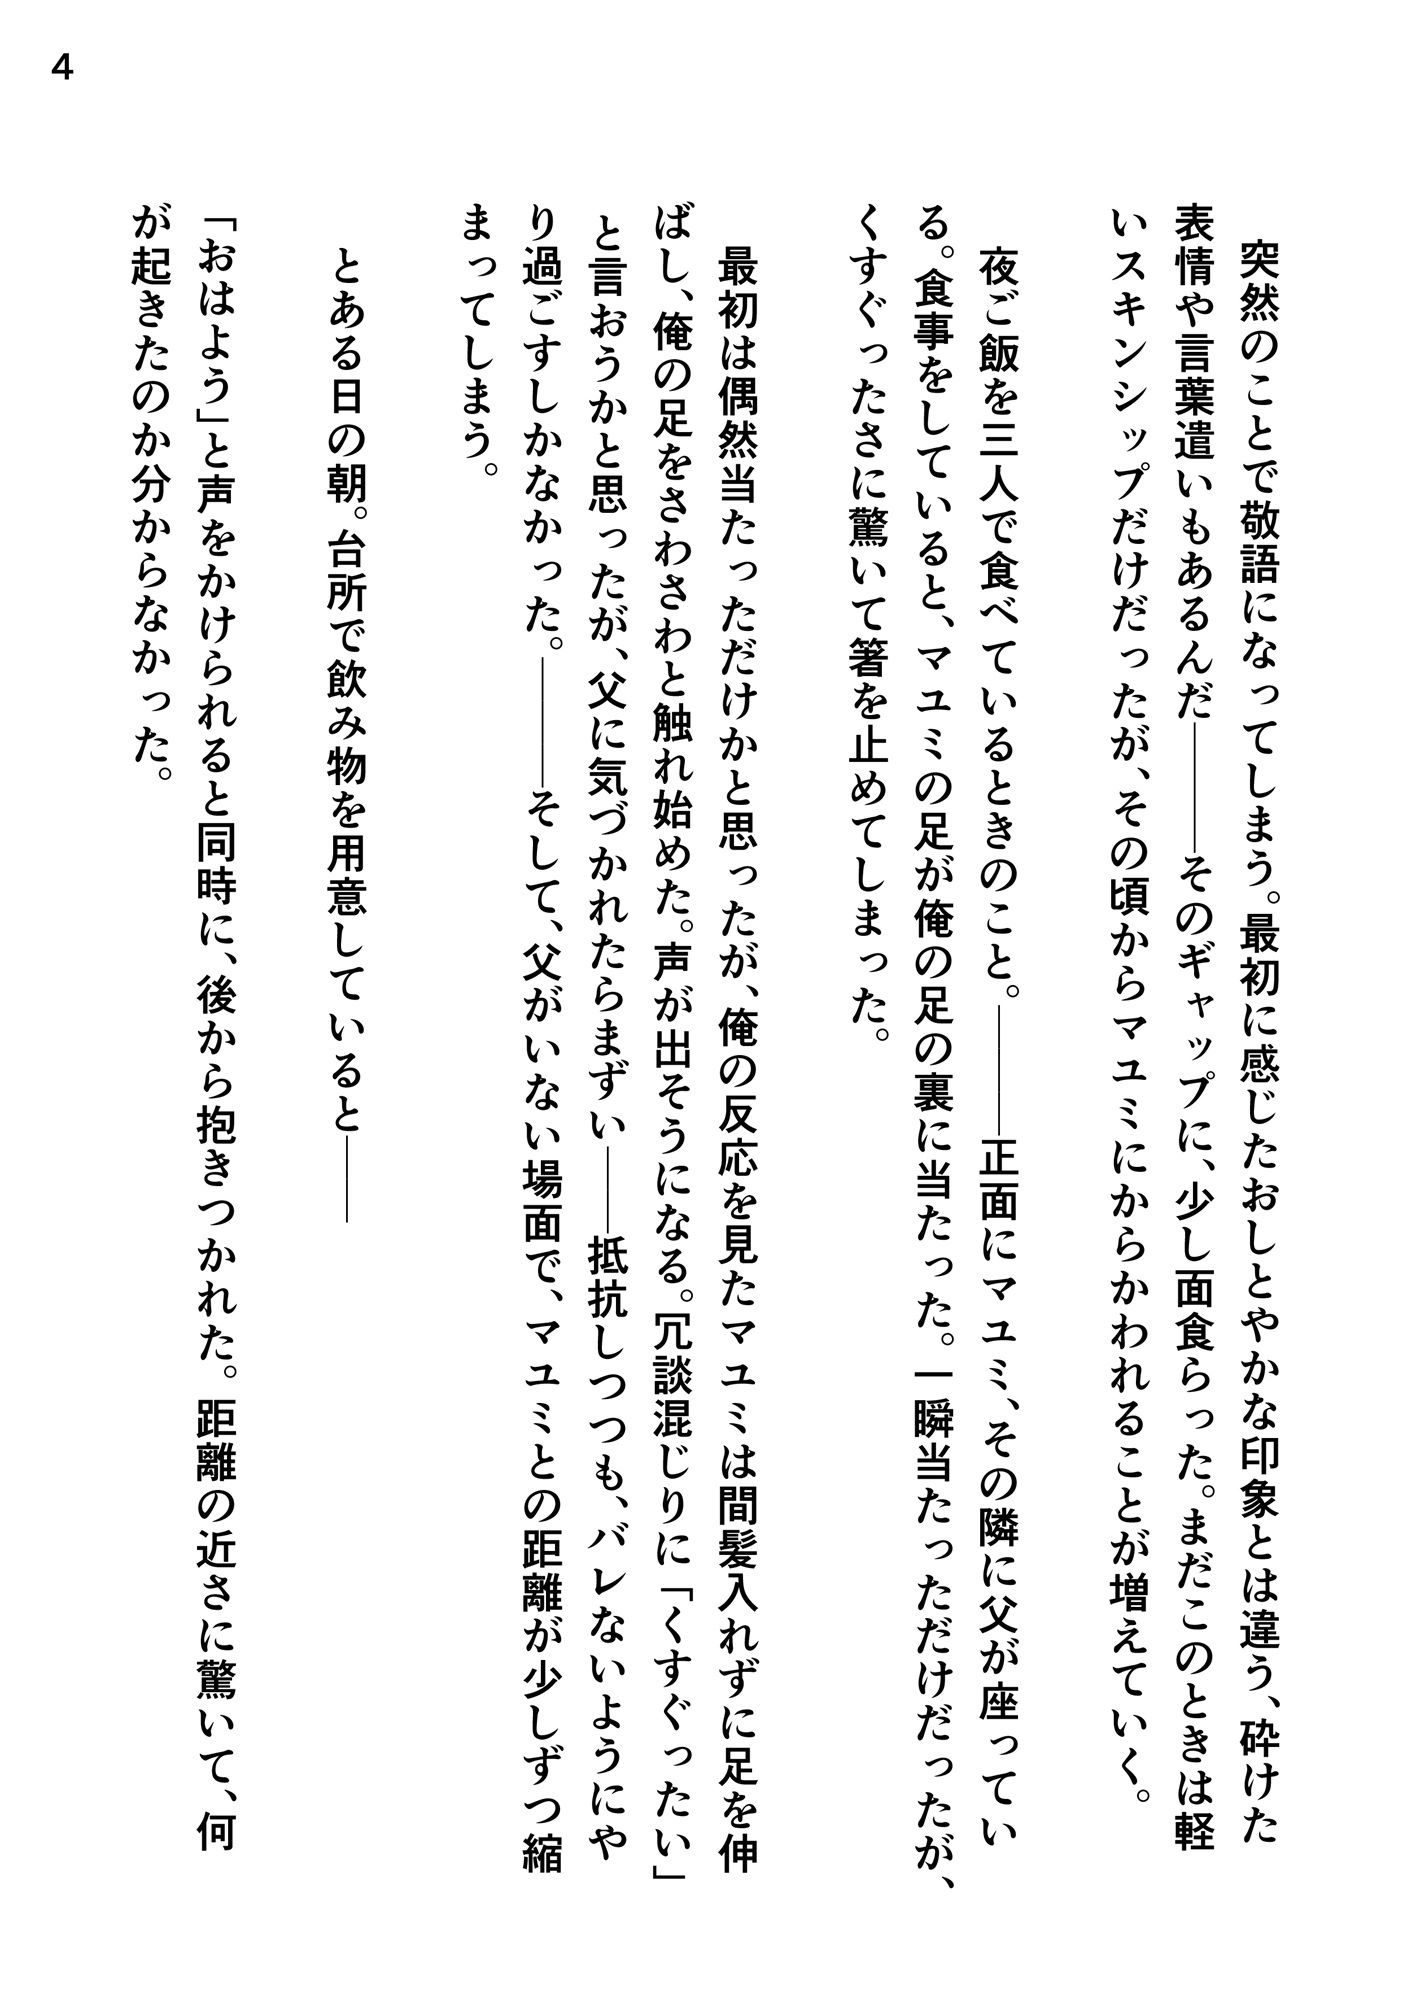 4
突然のことで敬語になってしまう。最初に感じたおしとやかな印象とは違う、砕けた
表情や言葉遣いもあるんだ―――そのギャップに、少し面食らった。まだこのときは軽
いスキンシップだけだったが、その頃からマユミにからかわれることが増えていく。
夜ご飯を三人で食べているときのこと。―――正面にマユミ、その隣に父が座ってい
る。食事をしていると、マユミの足が俺の足の裏に当たった。一瞬当たっただけだったが、
くすぐったさに驚いて箸を止めてしまった。
最初は偶然当たっただけかと思ったが、俺の反応を見たマユミは間髪入れずに足を伸
ばし、俺の足をさわさわと触れ始めた。声が出そうになる。冗談混じりに「くすぐったい」
と言おうかと思ったが、父に気づかれたらまずい――抵抗しつつも、バレないようにや
り過ごすしかなかった。―――そして、父がいない場面で、マユミとの距離が少しずつ縮
まってしまう。
とある日の朝。台所で飲み物を用意していると――
「おはよう」と声をかけられると同時に、後から抱きつかれた。距離の近さに驚いて、何
が起きたのか分からなかった。